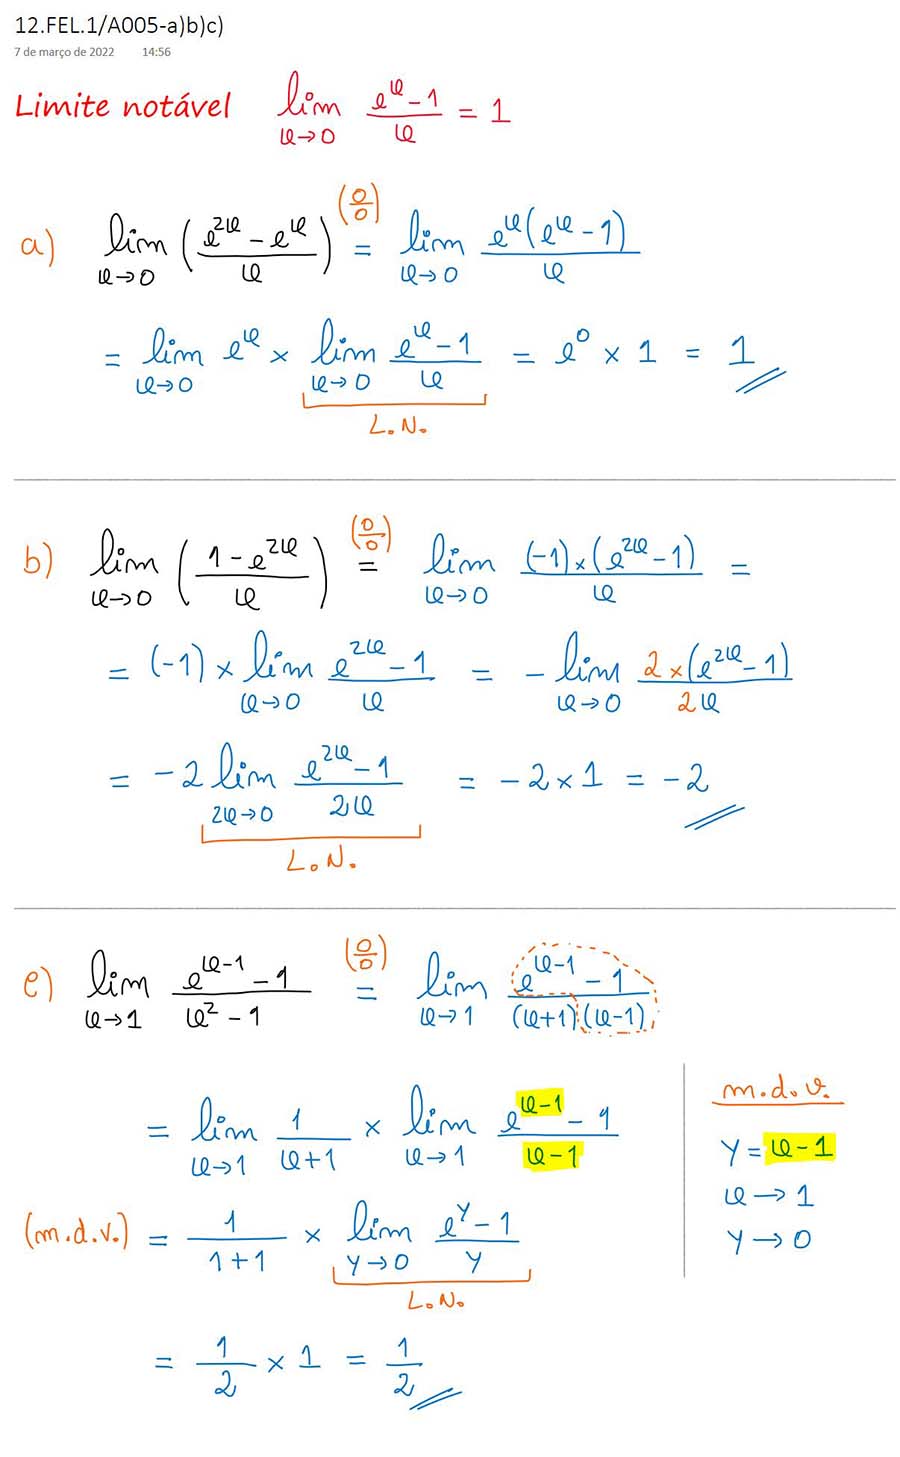 12.FEL.1/A005-a)b)c)
7 de março de 2022 14:56
Limite notável lim x→0 (e^x - 1)/x = 1
a) lim x→0 ((e^(2x) - e^x)/x) (0/0) = lim x→0 (e^x(e^x - 1))/x
= lim x→0 e^x × lim x→0 (e^x - 1)/x = e^0 × 1 = 1
L.N.
b) lim x→0 ((1 - e^(2x))/x) (0/0) = lim x→0 ((-1)×(e^(2x) - 1))/x =
= (-1) × lim x→0 (e^(2x) - 1)/x = - lim x→0 (2×(e^(2x) - 1))/(2x)
= -2 lim 2x→0 (e^(2x) - 1)/(2x) = -2×1 = -2
L.N.
c) lim x→1 (e^(x-1) - 1)/(x² - 1) (0/0) = lim x→1 (e^(x-1) - 1)/((x+1)(x-1))
= lim x→1 1/(x+1) × lim x→1 (e^(x-1) - 1)/(x-1)
m.d.v.
y = x-1
x→1
y→0
(m.d.v.) = 1/(1+1) × lim y→0 (e^y - 1)/y
L.N.
= 1/2 × 1 = 1/2